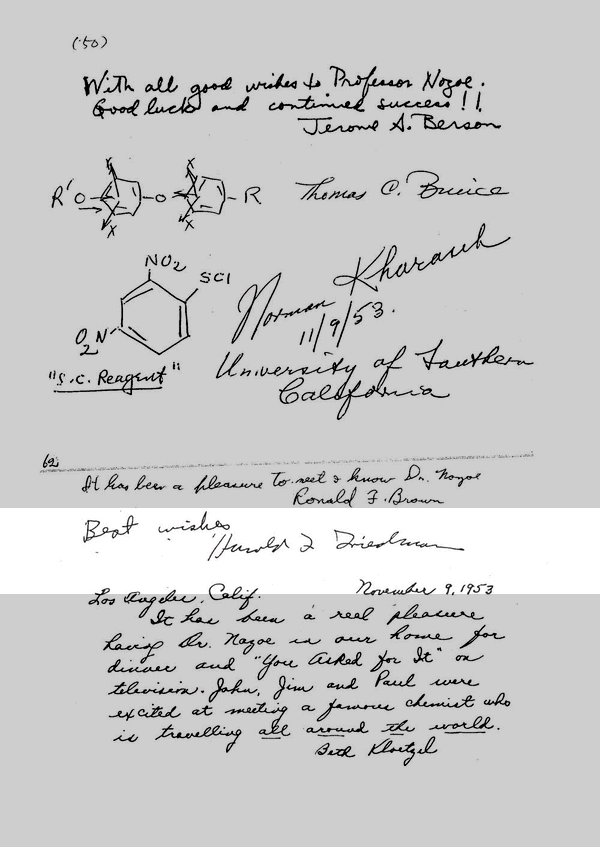 (50)
With all good wishes to Professor Nozoe.
Good luck and continued success!!
Jerome A. Berson
R'O O R
X X
X X
Thomas C. Bruice
NO2
SCl
O2N
"S.C. Reagent"
Norman Kharasch
11/9/53.
University of Southern
California
62
It has been a pleasure to meet & know Dr. Nozoe
Ronald F. Brown
Best wishes
Harold L Friedman
Los Angeles, Calif. November 9, 1953
It has been a real pleasure
having Dr. Nozoe in our home for
dinner and "You Asked for It" on
television. John, Jim and Paul were
excited at meeting a famous chemist who
is travelling all around the world.
Beth Kloetzel